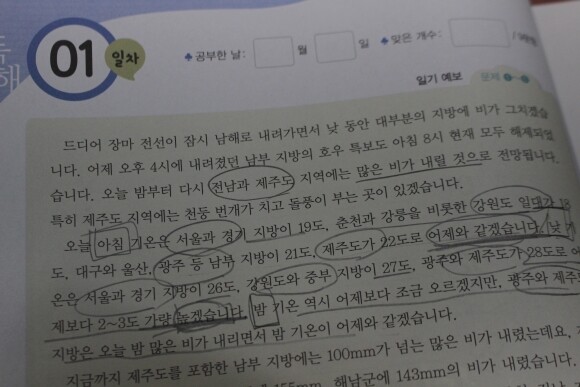 독
해
01 일차
♣공부한 날: 월 일 ♣맞은 개수:
일기 예보 문제
드디어 장마 전선이 잠시 남해로 내려가면서 낮 동안 대부분의 지방에 비가 그치겠습
니다. 어제 오후 4시에 내려졌던 남부 지방의 호우 특보도 아침 8시 현재 모두 해제되었
습니다. 오늘 밤부터 다시 전남과 제주도 지역에는 많은 비가 내릴 것으로 전망됩니다.
특히 제주도 지역에는 천둥 번개가 치고 돌풍이 부는 곳이 있겠습니다.
오늘 아침 기온은 서울과 경기 지방이 19도, 춘천과 강릉을 비롯한 강원도 일대가 18
도, 대구와 울산, 광주 등 남부 지방이 21도, 제주도가 22도로 어제와 같겠습니다. 낮 기
온은 서울과 경기 지방이 26도, 강원도와 중부 지방이 27도, 광주와 제주도가 28도로 어
제보다 2~3도 가량 높겠습니다. 밤 기온 역시 어제보다 조금 오르겠지만, 광주와 제주
지방은 오늘 밤 많은 비가 내리면서 밤 기온이 어제와 같겠습니다.
지금까지 제주도를 포함한 남부 지방에는 100mm가 넘는 많은 비가 내렸는데요.
해남군에 143mm의 비가 내렸습니다.